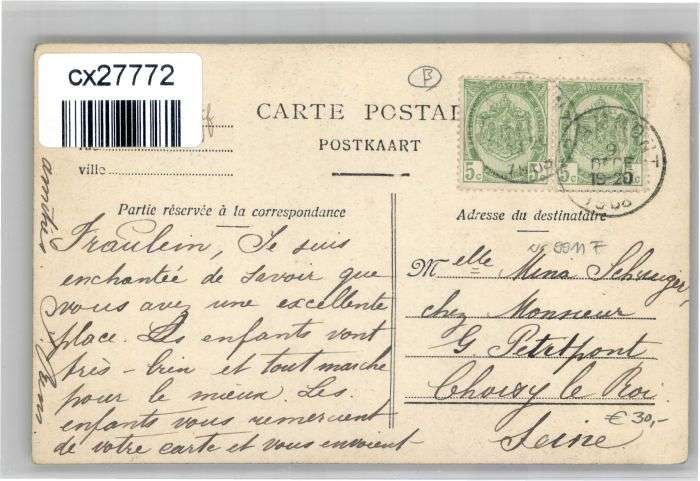 cx27772
B
CARTE POSTAL
POSTKAART
ville
5c 5c
5c
9
DECE
19-20
Partie réservée à la correspondance
Adresse du destinataire
Fraulein, Je suis
enchantée de savoir que
vous avez une excellente
place. Les enfants vont
très-bien et tout marche
pour le mieux. Les
enfants vous remercient
de votre carte et vous envoient
amitiés
Melle Mina
chez Monsieur
G. Petitpont
Choisy le Roi
Seine
€30,-